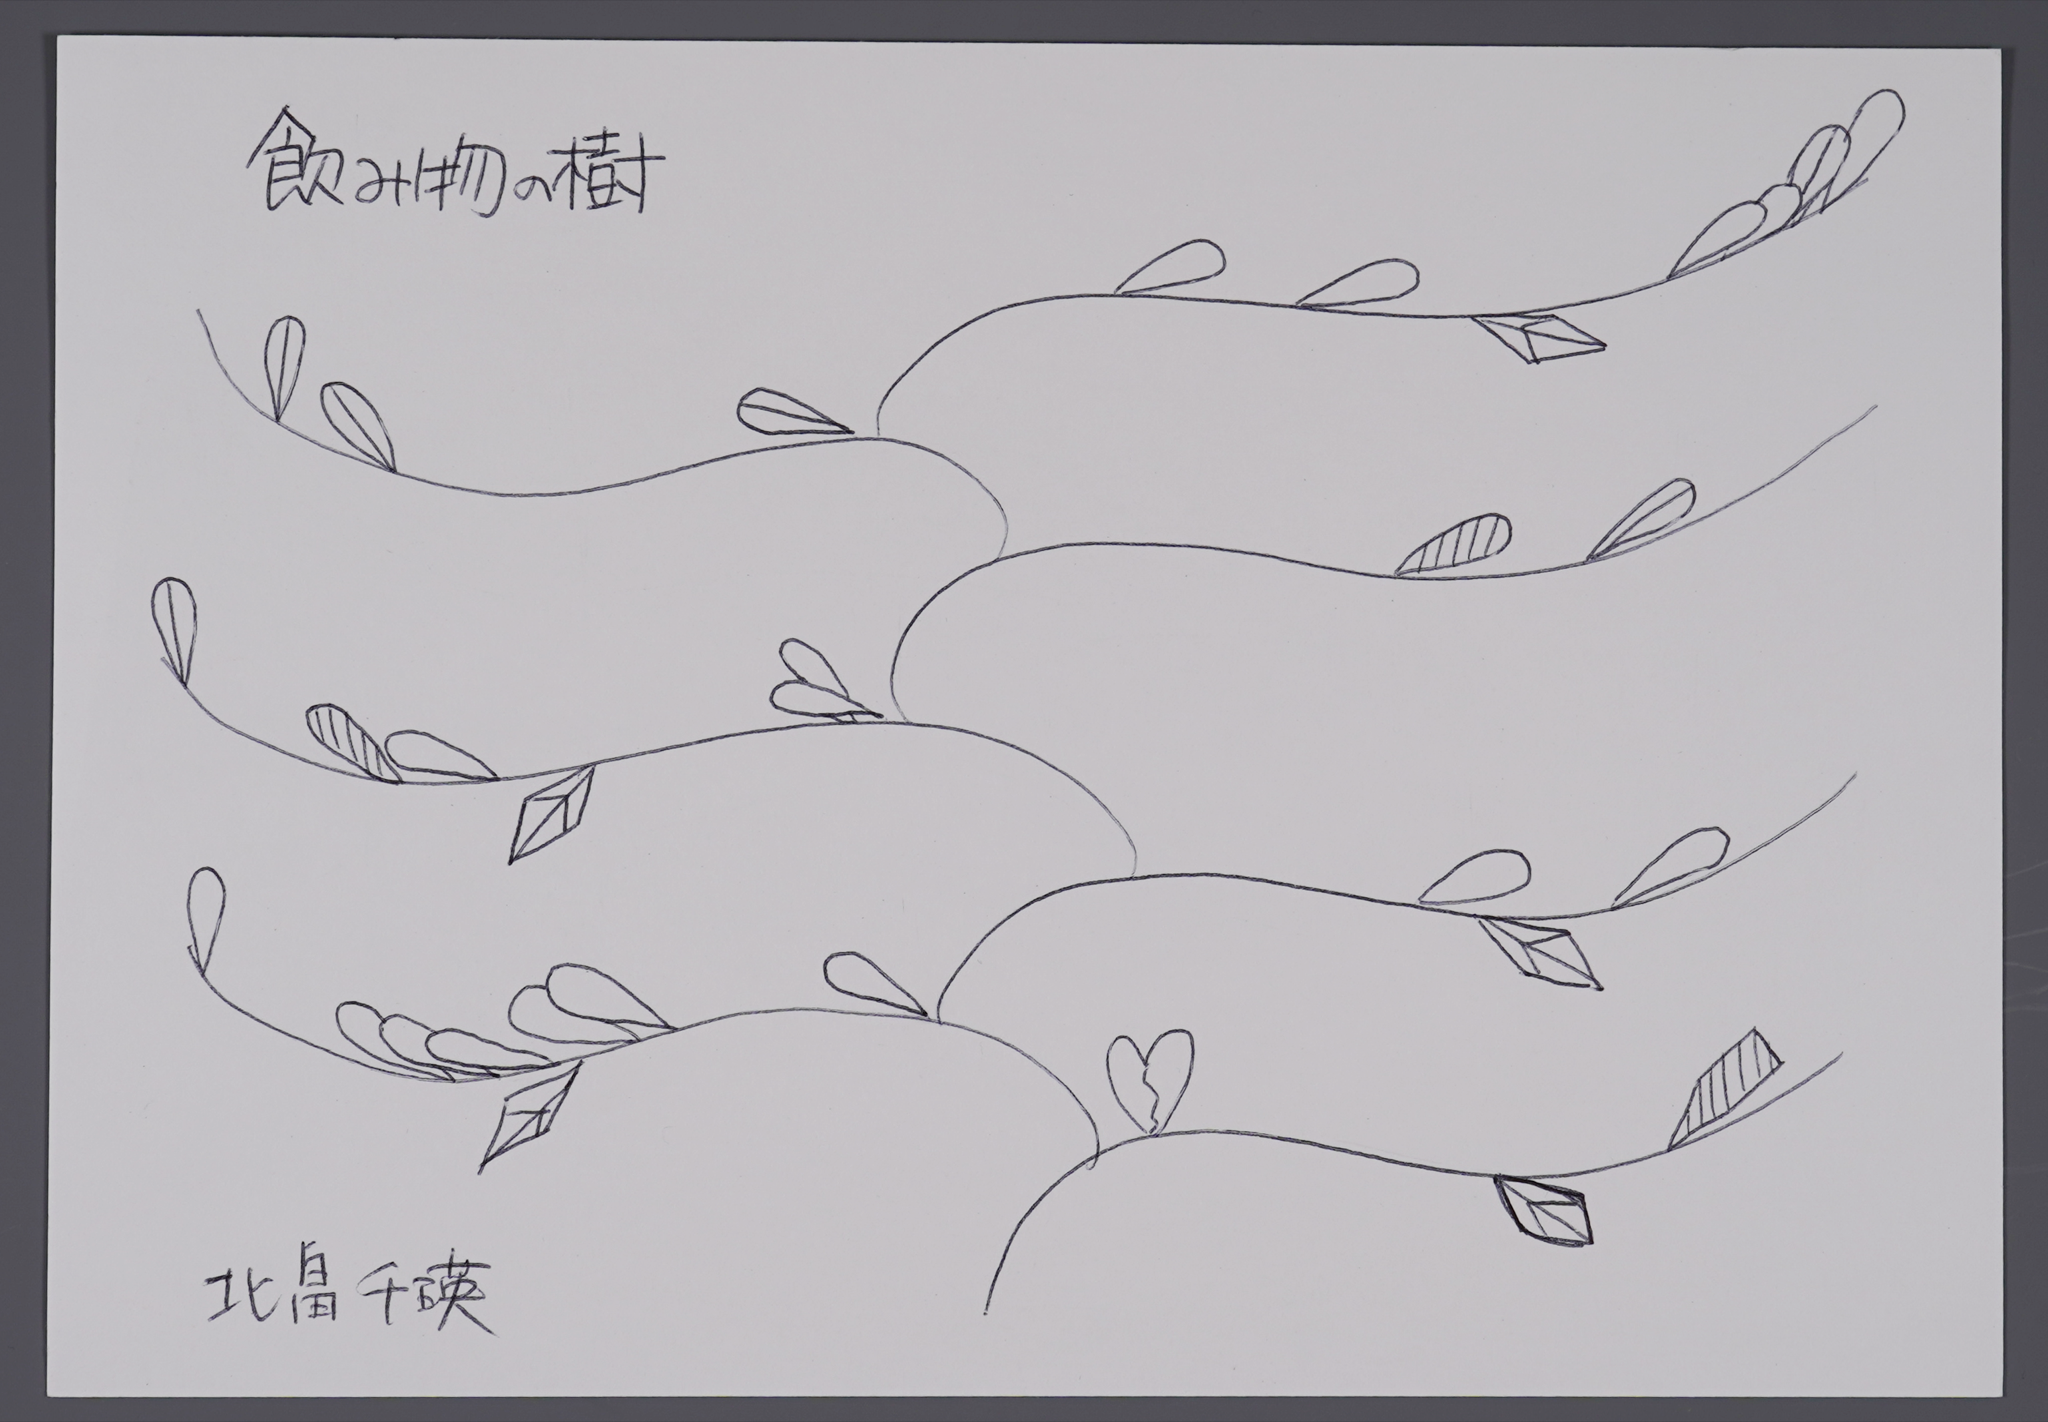 飲み物の樹
北畠千瑛